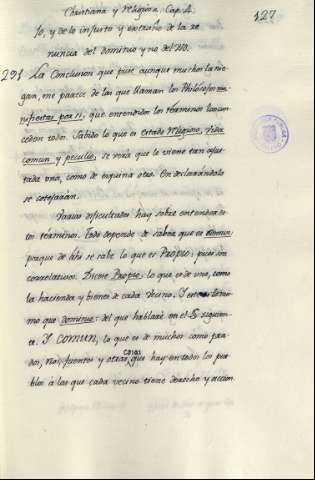 Christiana y Religiosa, Cap. 4.
127
so, y de lo injusto y extraño de la re
nuncia del dominio y no del uso.
291 La Conclusion que puse aunque muchos la nie-
gan, me parece de las que llaman los Philosofos ma-
nifiestas por si, que entendidos los terminos
ceden todo. Sabido lo que es estado Religioso, Vida
comun y peculio, se verá que le viene tan
tada una, como de esquina otro. En declarandolo
se cotejarán.
Pocas dificultades hay sobre entender es
tos terminos. Todo depende de saber que es comun,
porque de ahi se sabe lo que es Propio: pues son
correlativos. Dicese Propio: lo que es de uno, como
la hacienda y bienes de cada Vecino. Y este
mo que dominio: del que hablaré en el § siguien
te. Y COMUN, lo que es de muchos como pra-
dos, rios, fuentes y otras cosas que hay en todos los pue
blos á las que cada vecino tiene derecho y accion